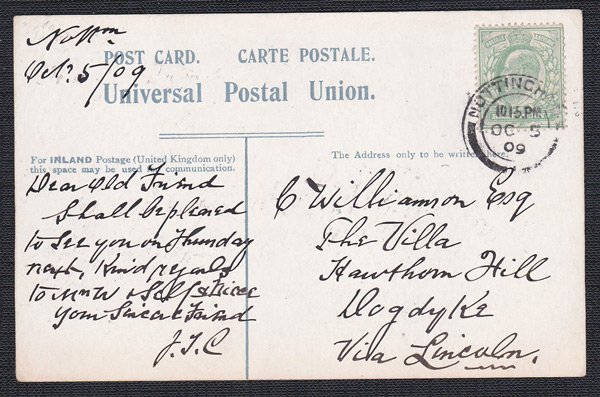 Nottm
Oct. 5/09
POST CARD. CARTE POSTALE.
Universal Postal Union.
NOTTINGH
10.15 PM
OC 5
09
For INLAND Postage (United Kingdom only)
this space may be used for communication.
The Address only to be written here.
Dear Old Friend
Shall be pleased
to see you on Thursday
next, Kind regards
to Mrs W & Self & Niece
Your Sincere Friend
J.T.C
C Williamson Esq
The Villa
Hawthorn Hill
Dogdyke
Via Lincoln.